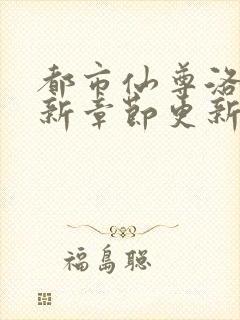 都市仙尊洛
新章節更新
福島聡